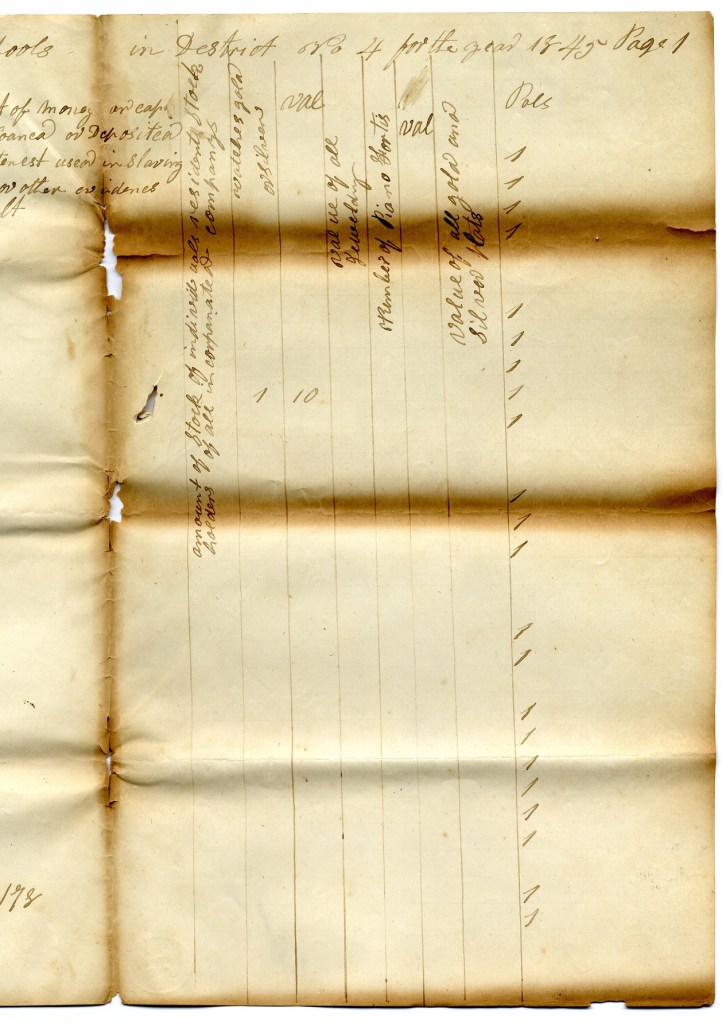 ools in District No 4 for the year 1845 Page 1
t of money or cap
Loaned or Deposited
terest used in Shaving
or other evidences
amount of Stock of individuals residents Stock
holders of all incorporated companys
watches gold
or silver
val
value of all
Jewelry
Number of Piano Fortis
val
value of all gold and
Silver plats
Pols
1
1
1
1
1
1
1
1 10 1
1
1
1
1
1
1
1
1
1
1
1
1
1
178